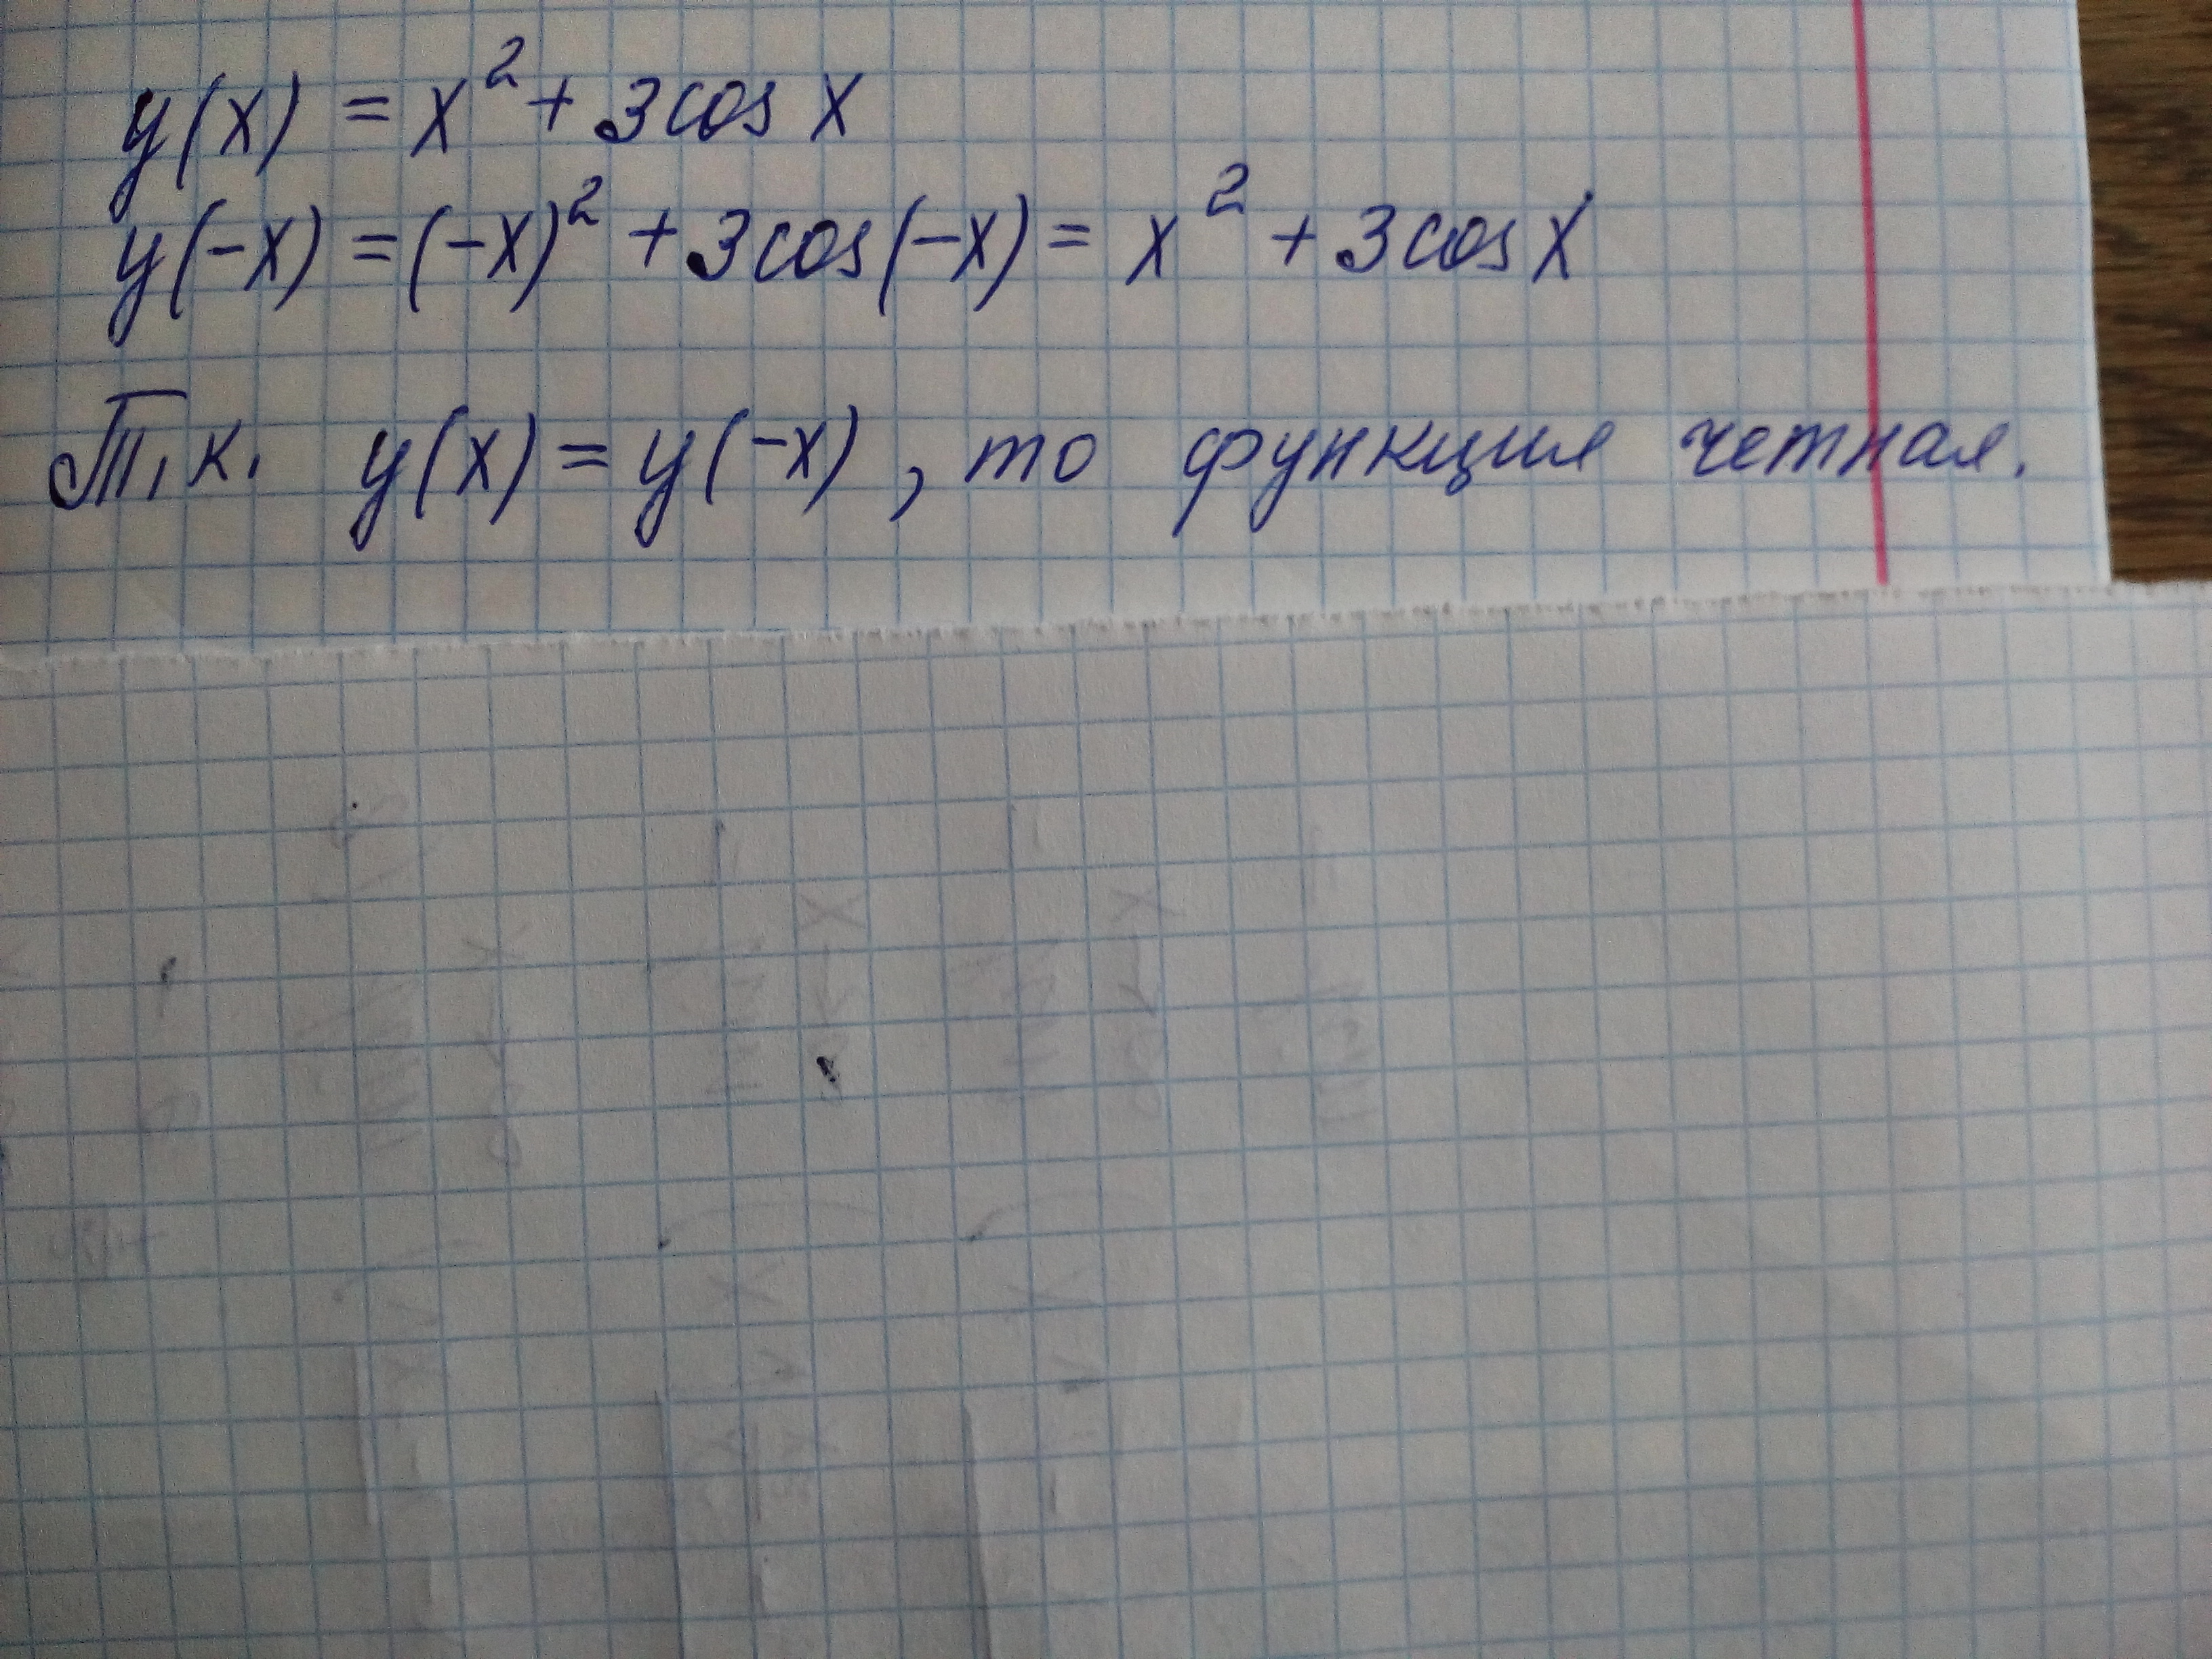 y(x) = x² + 3cos x
y(-x) = (-x)² + 3cos(-x) = x² + 3cos x
Т.к. y(x) = y(-x), то функция четная.